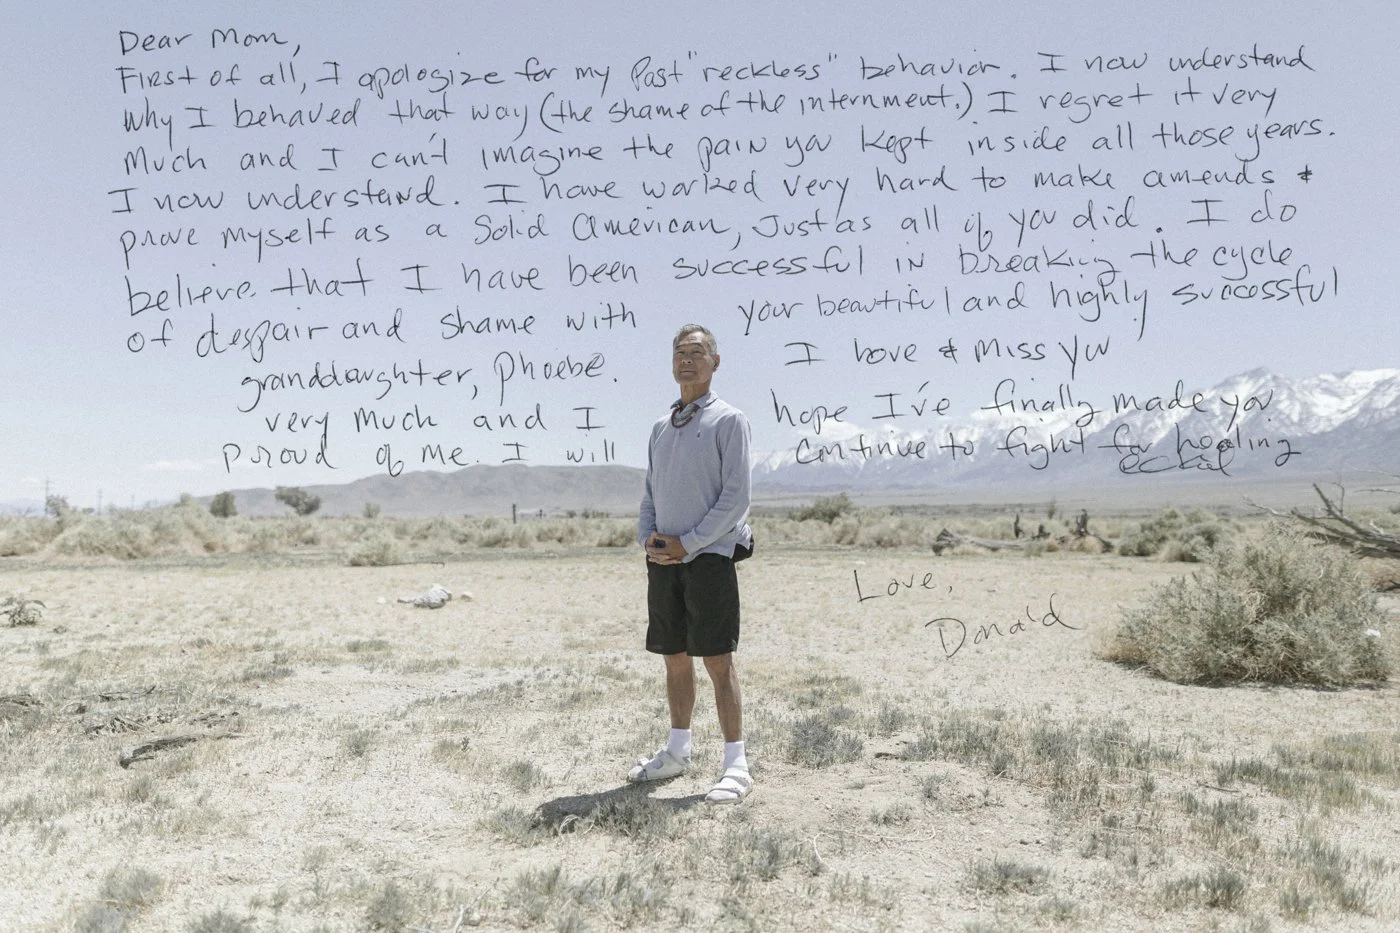 Dear Mom,
First of all, I apologize for my Past "reckless" behavior. I now understand
why I behaved that way (the shame of the internment.) I regret it very
Much and I can't imagine the pain you kept inside all those years.
I now understand. I have worked very hard to make amends &
prove myself as a Solid American, Just as all of you did. I do
believe that I have been successful in breaking the cycle
of despair and shame with your beautiful and highly successful
granddaughter, Phoebe. I love & Miss you
very Much and I hope I've finally made you
proud of me. I will continue to fight for healing
Love,
Donald